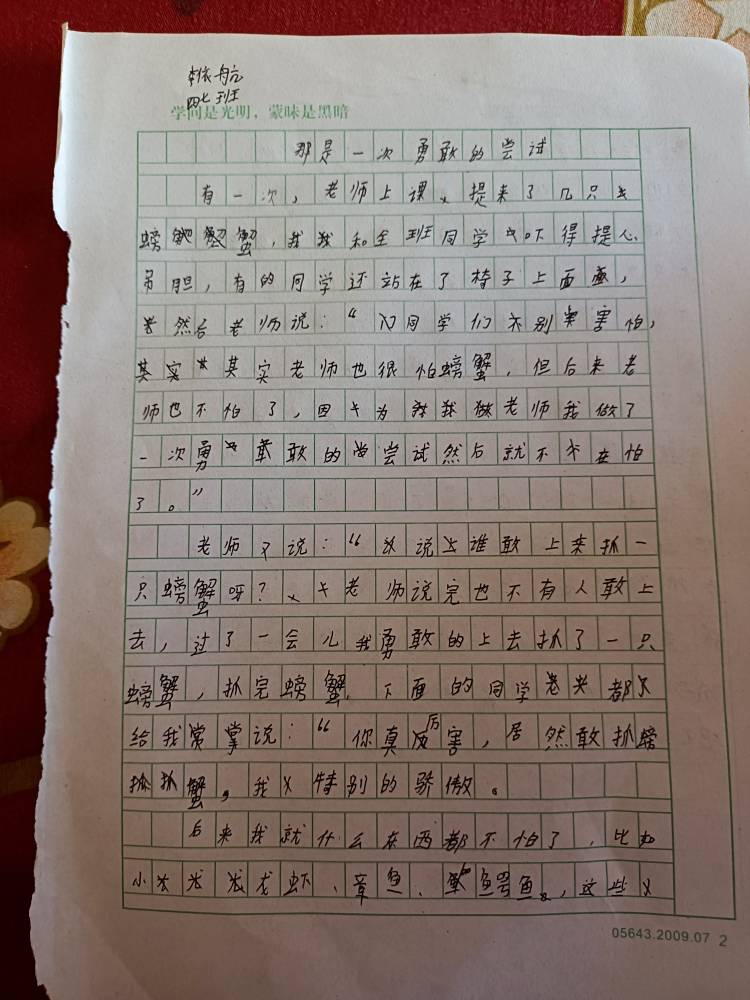 四七班
学问是光明，蒙昧是黑暗
那是一次勇敢的尝试
有一次，老师上课、提来了几只
螃蟹，我我和全班同学吓得提心
吊胆，有的同学还站在了椅子上面，
然后老师说：“同学们不别害怕，
其实其实老师也很怕螃蟹，但后来老
师也不怕了，因为我做老师我做了
一次勇敢的尝试然后就不在怕
了。”
老师又说：“说谁敢上来抓一
只螃蟹呀？老师说完也不有人敢上
去，过了一会儿我勇敢的上去抓了一只
螃蟹，抓完螃蟹。下面的同学老都
给我掌说：“你真厉害，居然敢抓螃
蟹，我特别的骄傲。
后来我就什么在西都不怕了，比如
小龙虾、章鱼、鳄鱼，这些
05643.2009.07 2